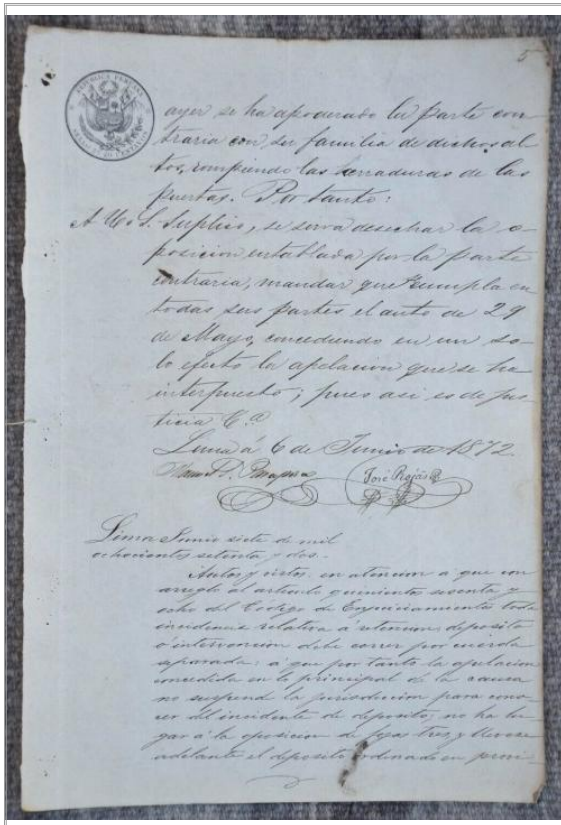 5
REPUBLICA PERUANA
ayer se ha apoderado la parte con-
traria con su familia de dichos al-
tos, rompiendo las serraduras de las
puertas. Por tanto:
A U. S. Suplico, se sirva desechar la o-
posicion entablada por la parte
contraria, mandar que se cumpla en
todas sus partes el auto de 29
de Mayo, concediendo en un so-
lo efecto la apelacion que se ha
interpuesto; pues asi es de jus-
ticia &.a
Lima á 6 de Junio de 1872
José Rojas
Lima Junio siete de mil
ochocientos setenta y dos.
Autos y vistos: en atencion a que con
arreglo al articulo quinientos sesenta y
ocho del Codigo de Enjuiciamientos toda
incidencia relativa á retencion, deposito
ó intervencion debe correr por cuerda
separada: a que por tanto la apelacion
concedida en lo principal de la causa
no suspende la jurisdiccion para cono-
cer del incidente de deposito; no ha lu-
gar á la oposicion de fojas tres, y llevese
adelante el deposito ordenado en provi-